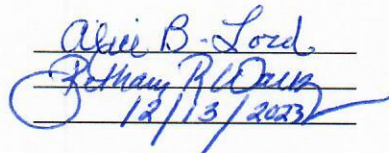 Alice B. Lord
Bethany R
12/13/2023